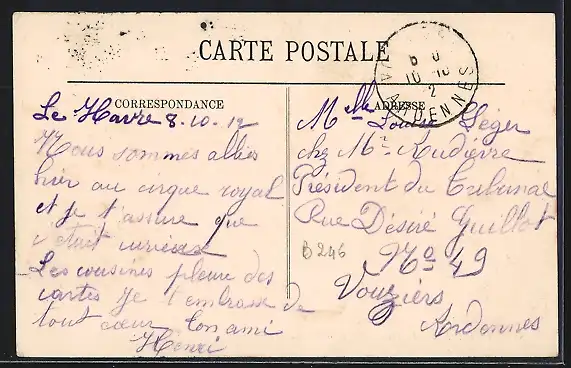 CARTE POSTALE
CORRESPONDANCE
ADRESSE
Le Havre 8.10.12
Nous sommes allés
hier au cirque royal
et je t'assure que
c'était curieux
Les cousines pleure des
cartes Je t'embrasse de
tout coeur ton ami
Henri
Melle Louise Léger
chez Mr Audièvre
Président du Tribunal
Rue Désiré Guillot
No 49
Vouziers
Ardennes
B 246
ARDENNES